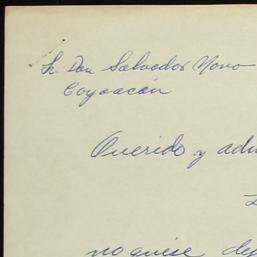 Sr. Don Salvador Novo
Coyoacán
Querido y adm
no quise de